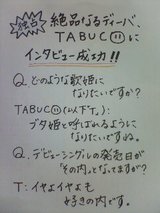 独占
絶品なるディーバ、
TABUCOに
インタビュー成功!!
Q. どのような歌姫に
なりたいですか?
TABUCO(以下T.):
ブタ姫と呼ばれるように
なりたいですね。
Q. デビューシングルの発売日が
"その内"となってますが?
T: イヤよイヤよも
好きの内です。